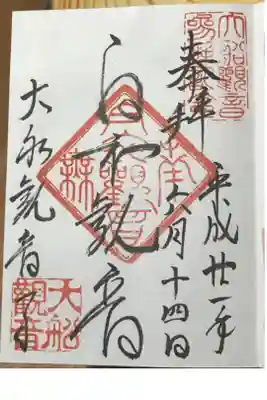 奉拝
平成廿一年
八月十四日
白衣観音
大船観音寺
大船
觀音